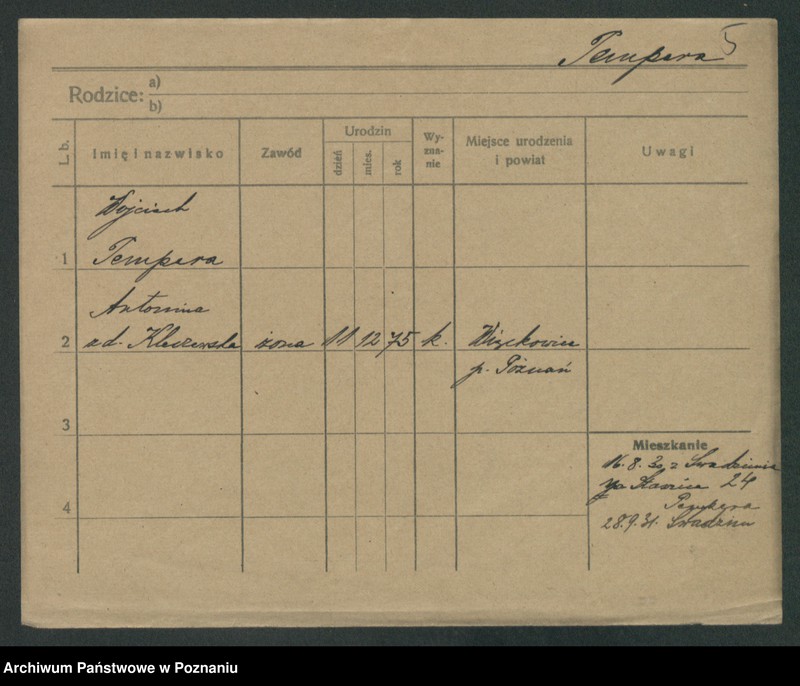 Tempera 5
Rodzice: a)
b)
L. b.
Imię i nazwisko
Zawód
Urodzin
dzień
mies.
rok
Wy-
zna-
nie
Miejsce urodzenia
i powiat
Uwagi
Wojciech
1 Tempera
Antonina
2 żona 11 12 75 k. Więckowice
p. Poznań
3
Mieszkanie
16.8.30 z Swadzimia
24
4
28.9.31. Swadzim
Archiwum Państwowe w Poznaniu